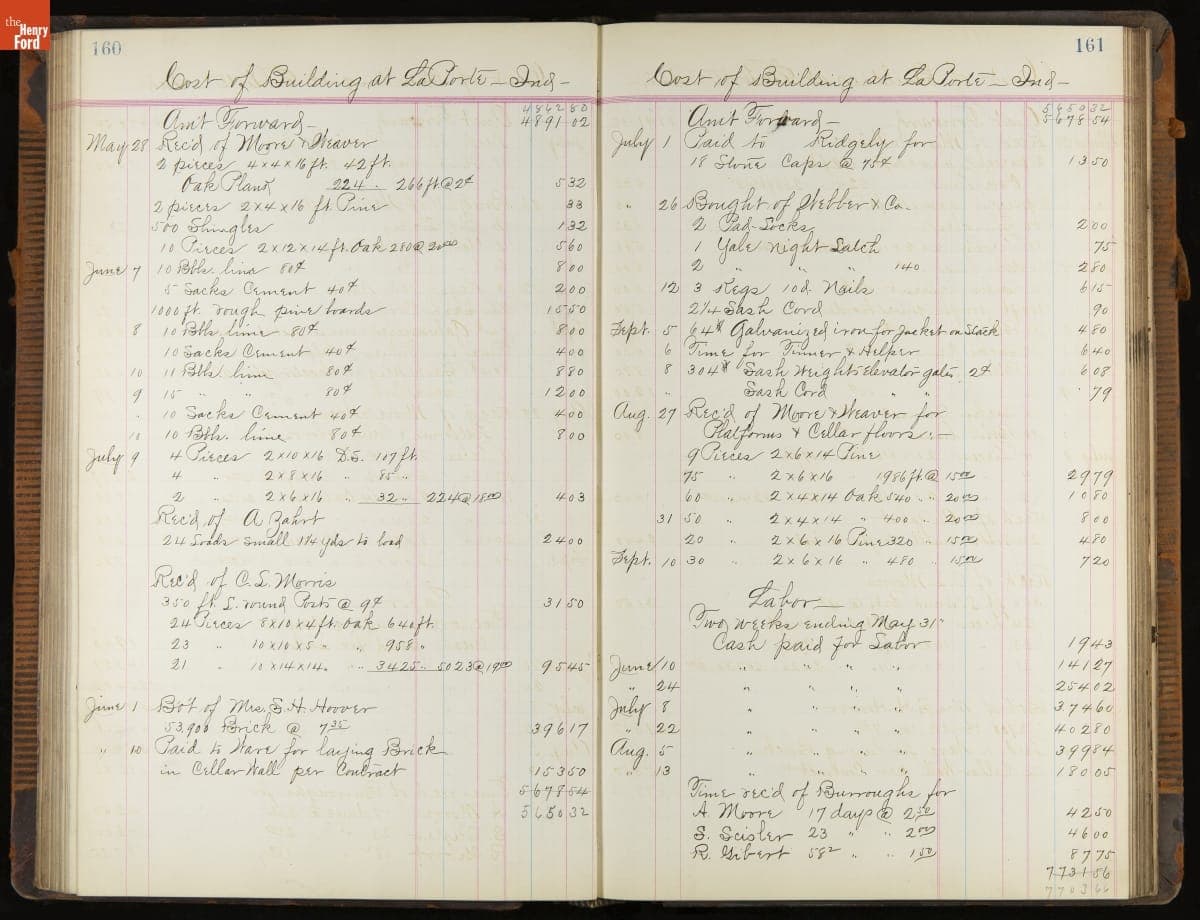 the
Henry
Ford
160
Cost of Building at La Porte - Ind -
4862 80
Am't Forward - 4891 02
May 28 Rec'd of Moore & Weaver
2 pieces 4x4x16 ft. 42 ft.
Oak Plank 224 . 266 ft. @ 2¢ 5 32
2 pieces 2x4x16 ft Pine 33
500 Shingles 1 32
10 Pieces 2x12x14 ft. Oak 280 @ 20 00 5 60
June 7 10 Bbls. lime 80¢ 8 00
5 Sacks Cement 40¢ 2 00
1000 ft. rough pine boards 15 50
8 10 Bbls. lime 80¢ 8 00
10 Sacks Cement 40¢ 4 00
10 11 Bbls. lime 80¢ 8 80
9 15 " " 80¢ 12 00
" 10 Sacks Cement 40¢ 4 00
10 10 Bbls. lime 80¢ 8 00
July 9 4 Pieces 2x10x16 D.S. 107 ft.
4 " 2x8x16 " 85 "
2 " 2x6x16 " 32 " 224 @ 18 00 4 03
Rec'd of A Zahrt
24 Loads small 1 1/4 yds to load 24 00
Rec'd of C. L. Morris
350 ft. L. round Posts @ 9¢ 31 50
24 Pieces 8x10x4 ft. Oak 640 ft.
23 " 10x10x5 " " 958 "
21 " 10x14x14 " " 3425 " 5023 @ 19 00 95 45
June 1 Bo't of Mrs. S. H. Hoover
53,900 Brick @ 7 35 396 17
" 10 Paid to Ware for laying Brick
in Cellar Wall per Contract 153 50
5678 54
5650 32
161
Cost of Building at La Porte - Ind -
5650 32
Am't Forward - 5678 54
July 1 Paid to Ridgely for
18 Stone Caps @ 75¢ 13 50
" 26 Bought of Webber & Co.
2 Pad-Locks 2 00
1 Yale Night Latch 75
2 " " " 140 2 80
12 3 Kegs 10d. Nails 6 15
2 1/4 Sash Cord 90
Sept. 5 64# Galvanized iron for Jacket on Stack 4 80
6 Time for Tinner & Helper 6 40
8 304# Sash Weights Elevator gates 2¢ 6 08
" Sash Cord " " 79
Aug. 27 Rec'd of Moore & Weaver for
Platforms & Cellar floors: -
9 Pieces 2x6x14 Pine
75 " 2x6x16 1986 ft. @ 15 00 29 79
60 " 2x4x14 Oak 540 " " 20 00 10 80
31 50 " 2x4x14 " 400 " 20 00 8 00
20 " 2x6x16 Pine 320 " 15 00 4 80
Sept. 10 30 " 2x6x16 " 480 " 15 00 7 20
Labor -
Two weeks ending May 31"
Cash paid for Labor 19 43
June 10 " " " " 141 27
" 24 " " " " 254 02
July 8 " " " " 374 60
" 22 " " " " 402 80
Aug. 5 " " " " 399 84
" 13 " " " " 180 05
Time rec'd of Burroughs for
A. Moore 17 days @ 2 50 42 50
S. Scisler 23 " " 2 00 46 00
R. Gibert 58 2 " " 1 50 87 75
7731 56
7703 66